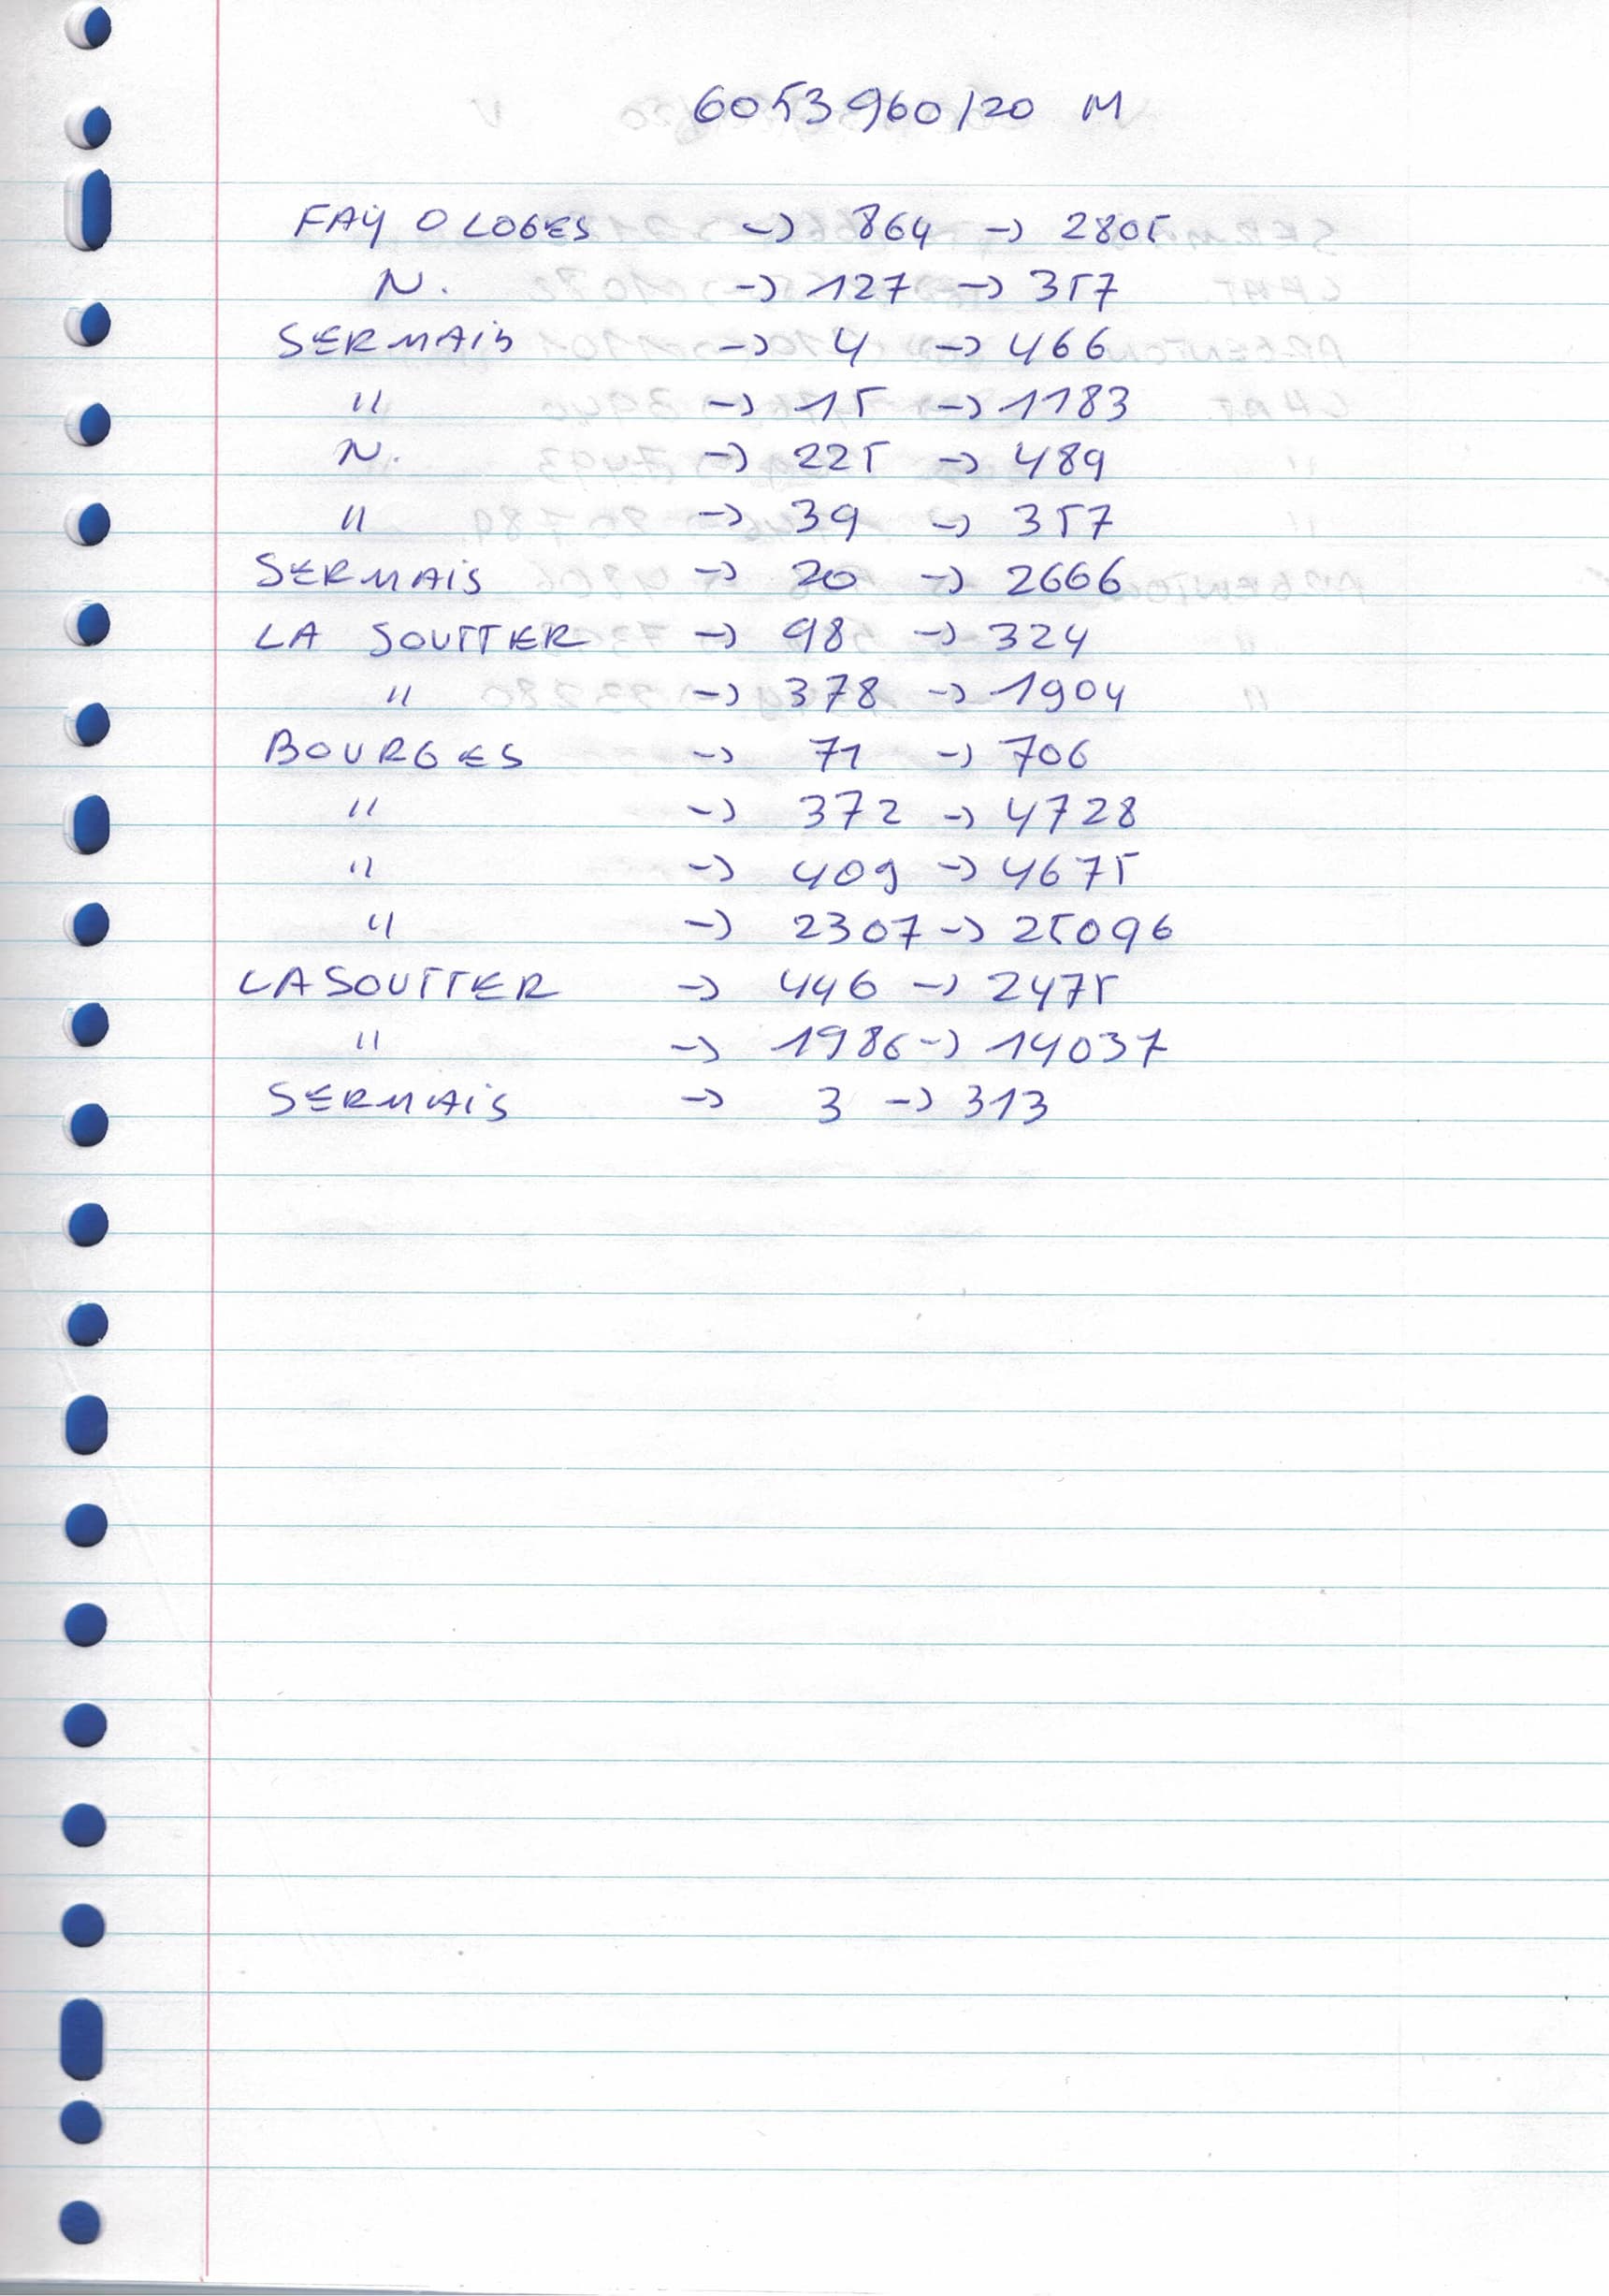 6053960/20 M
FAY O LOGES -> 864 -> 2805
N. -> 127 -> 357
SERMAIS -> 4 -> 466
" -> 15 -> 1183
N. -> 225 -> 489
" -> 39 -> 357
SERMAIS -> 20 -> 2666
LA SOUTTER -> 98 -> 324
" -> 378 -> 1904
BOURGES -> 71 -> 706
" -> 372 -> 4728
" -> 409 -> 4675
" -> 2307 -> 25096
LA SOUTTER -> 446 -> 2475
" -> 1986 -> 14037
SERMAIS -> 3 -> 313